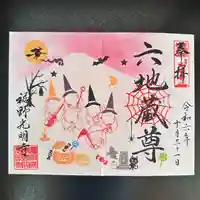 奉拝
令和六年
十月三十一日
六地蔵尊
福野光明寺